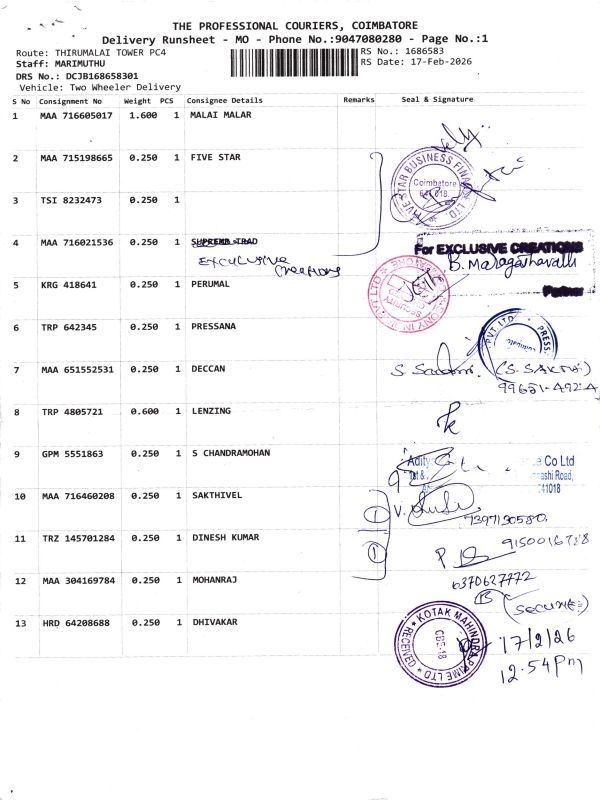 THE PROFESSIONAL COURIERS, COIMBATORE
Delivery Runsheet - MO - Phone No.:9047080280 - Page No.:1
Route: THIRUMALAI TOWER PC4
RS No.: 1686583
Staff: MARIMUTHU
RS Date: 17-Feb-2026
DRS No.: DCJB168658301
Vehicle: Two Wheeler Delivery
S No Consignment No Weight PCS Consignee Details Remarks Seal & Signature
1 MAA 716605017 1.600 1 MALAI MALAR
2 MAA 715198665 0.250 1 FIVE STAR
FIVE STAR BUSINESS FINANCE LTD. Coimbatore
3 TSI 8232473 0.250 1
4 MAA 716021536 0.250 1 SUPREME TRAD
EXCULUSIVE Creations
For EXCLUSIVE CREATIONS
B. Maragathavalli
Partner
5 KRG 418641 0.250 1 PERUMAL
Security
6 TRP 642345 0.250 1 PRESSANA
PVT LTD PRESS
7 MAA 651552531 0.250 1 DECCAN
(S. SAKTHI)
99651-4924
8 TRP 4805721 0.600 1 LENZING
9 GPM 5551863 0.250 1 S CHANDRAMOHAN
Co Ltd
Road,
41018
10 MAA 716460208 0.250 1 SAKTHIVEL
7397130580
11 TRZ 145701284 0.250 1 DINESH KUMAR
9150016788
12 MAA 304169784 0.250 1 MOHANRAJ
6370627772
13 HRD 64208688 0.250 1 DHIVAKAR
KOTAK MAHINDRA PRIME LTD RECEIVED CBE-18
17/2/26
12.54Pm